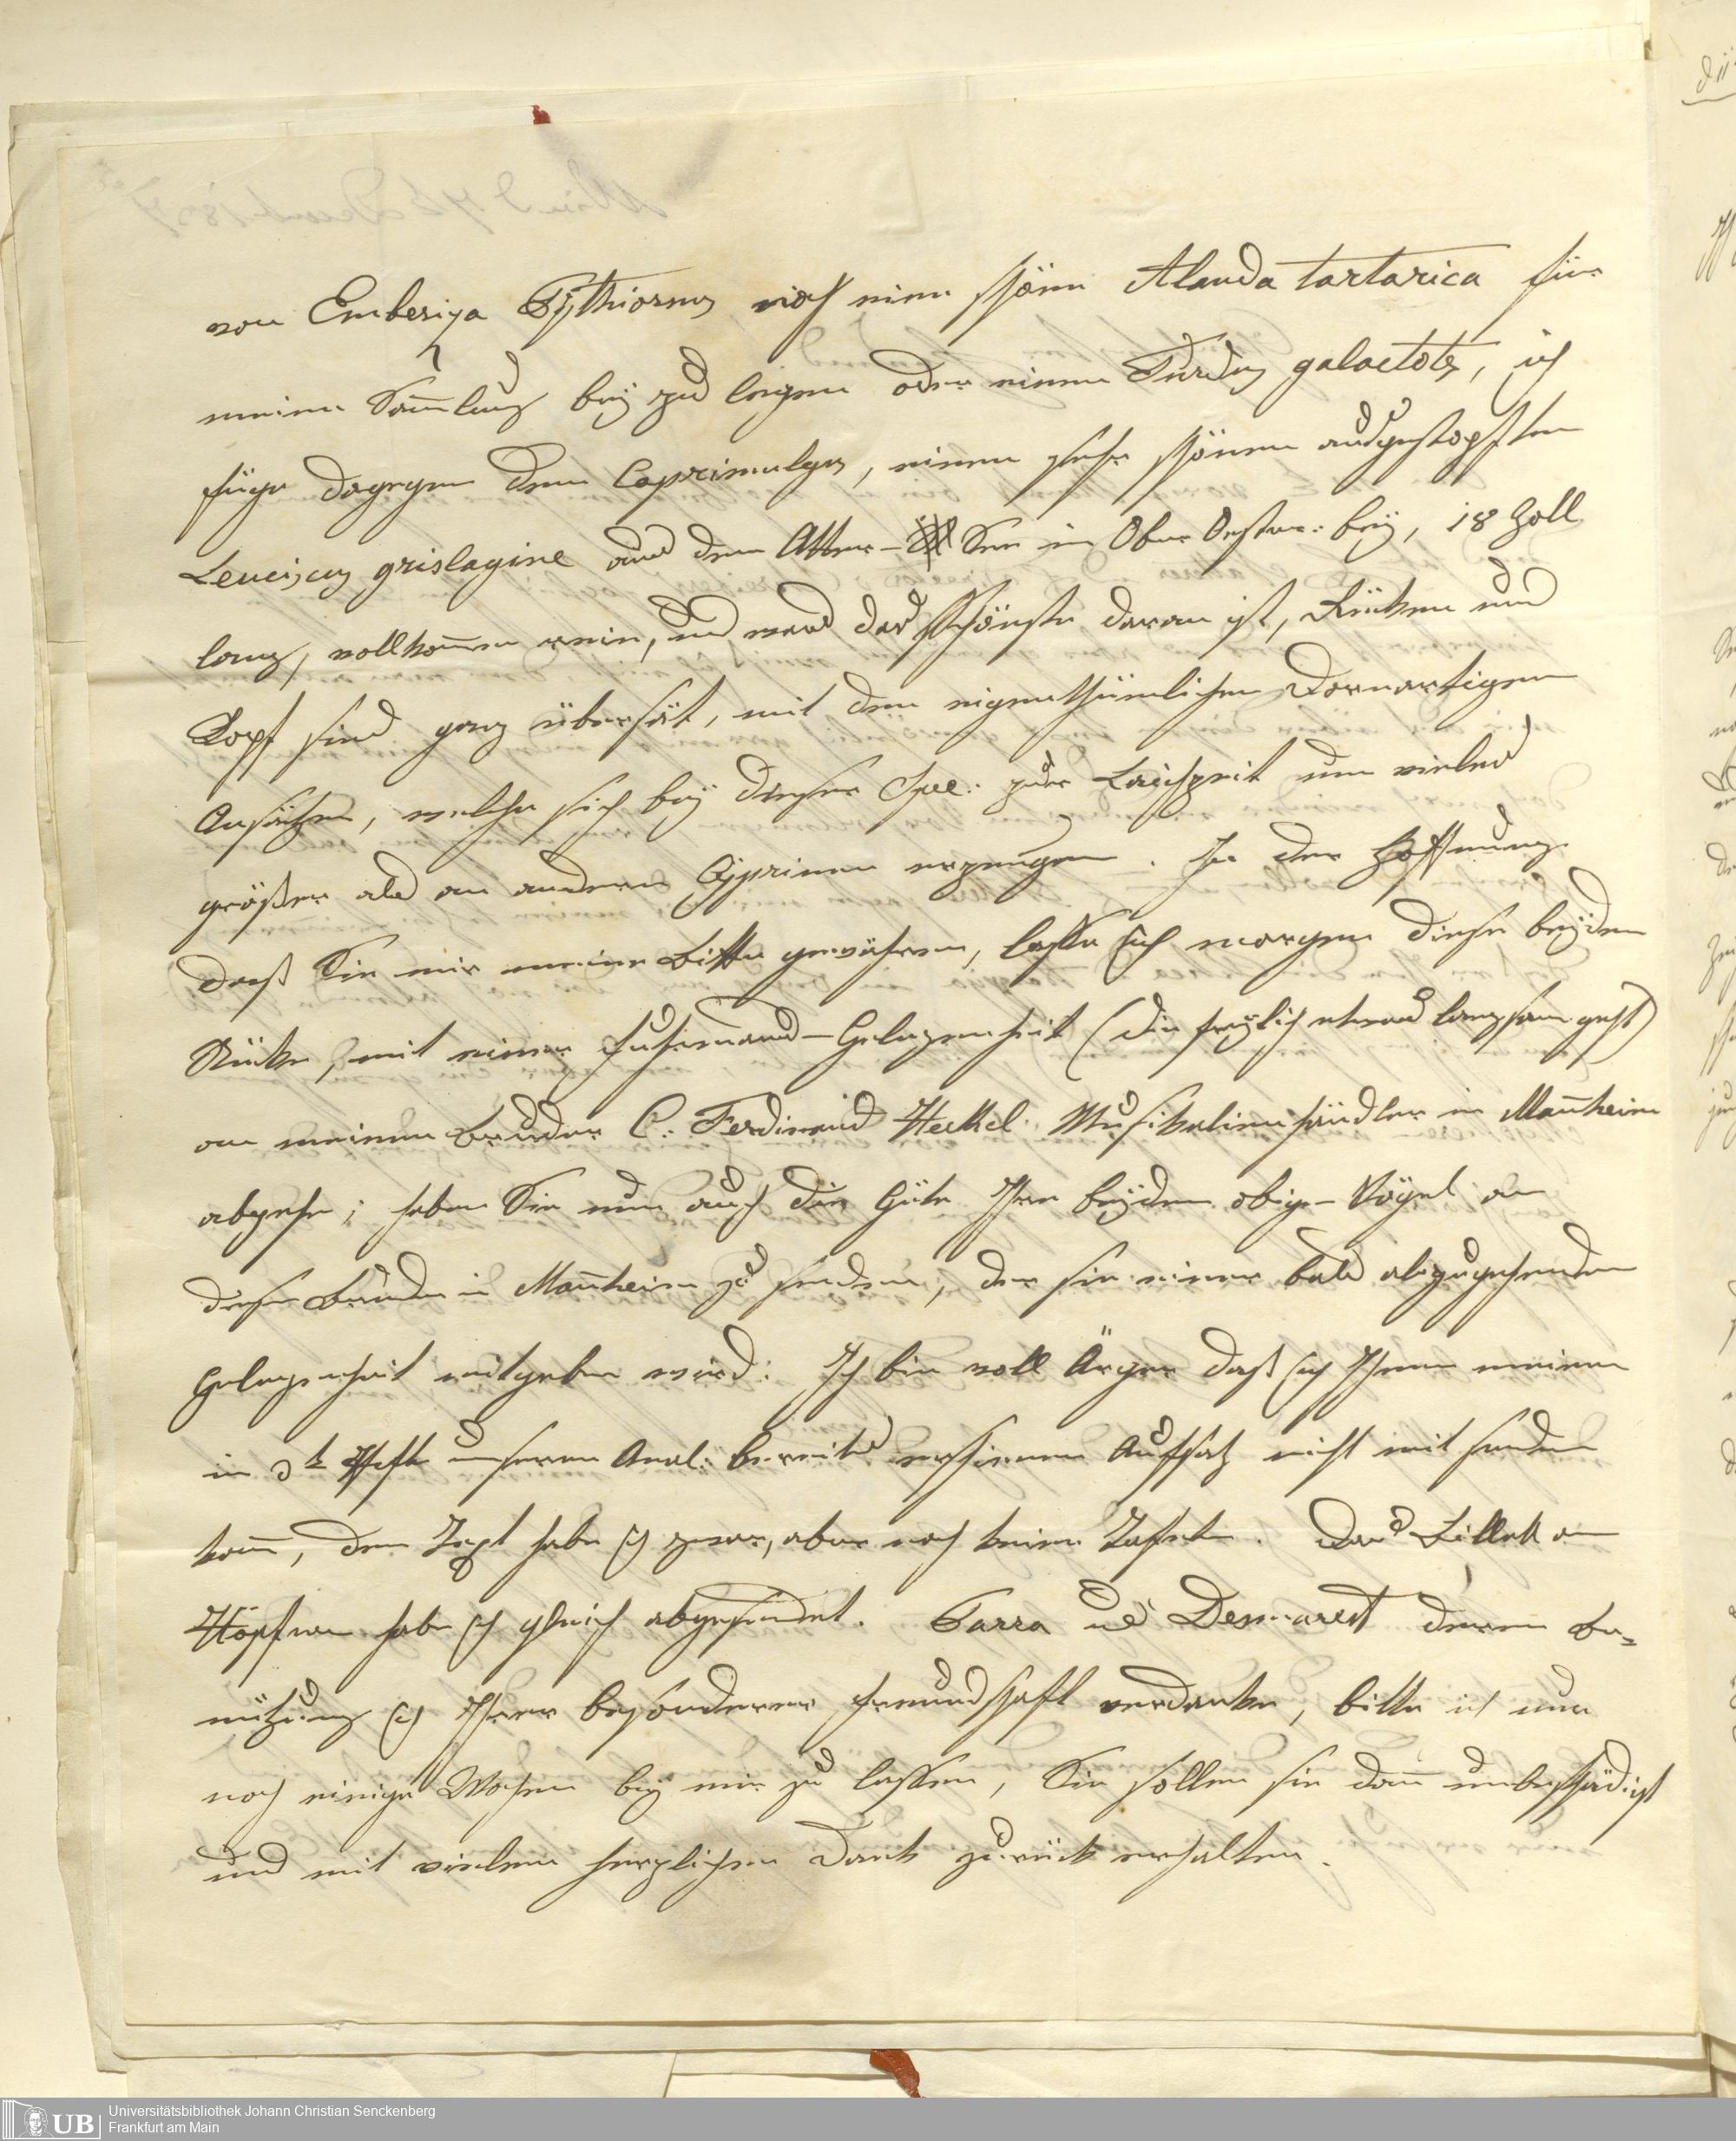 von Emberiza Pÿthiornus noch einen schönen Alauda tartarica für
meine Sam̄lung beÿ zu legen oder einen Turdus galactotes, ich
füge dagegen dem Caprimulgus, einen sehr schönen ausgestopften
Leuciscus grislagine aus dem Atter-See in Ober Oester: beÿ, 18 Zoll
lang, vollkom̄en rein, und was das schönste daran ist, Rücken und
Kopf sind ganz übersät, mit den eigenthümlichen Dornartigen
Ansätzen, welche sich beÿ dieser Spec: zur Laichzeit um vieles
größer als an andern Cÿprinen erzeugen. In der Hoffnung
daß Sie mir meine Bitte gewähren, lasse ich morgen diese beÿden
Stücke, mit einer Fuhrmans-Gelegenheit (die freÿlich etwas langsam geht)
an meinen Bruder C. Ferdinand Heckel Musikalienhändler in Man̄heim
abgehn; haben Sie nun auch die Güte Ihre beÿden obige Vögel an
diesen Bruder in Man̄heim zu senden, der sie einer bald abzugehenden
Gelegenheit mitgeben wird: Ich bin voll Ärger daß ich Ihnen meinen
in 3t Hefte unserer Anal: bereits erschienenen Aufsatz nicht mit senden
kan̄, den Text habe ich zwar, aber noch keine Tafeln. Das Billett an
Höpfner habe ich gleich abgesendet. Tarra und Desmarest deren Be-
nützung ich Ihrer besonderen Freundschaft verdanke, bitte ich nur
noch einige Wochen beÿ mir zu lassen, Sie sollen sie dan̄ unbeschädigt
und mit vielem herzlichen Dank zurück erhalten.
Universitätsbibliothek Johann Christian Senckenberg
Frankfurt am Main
UB